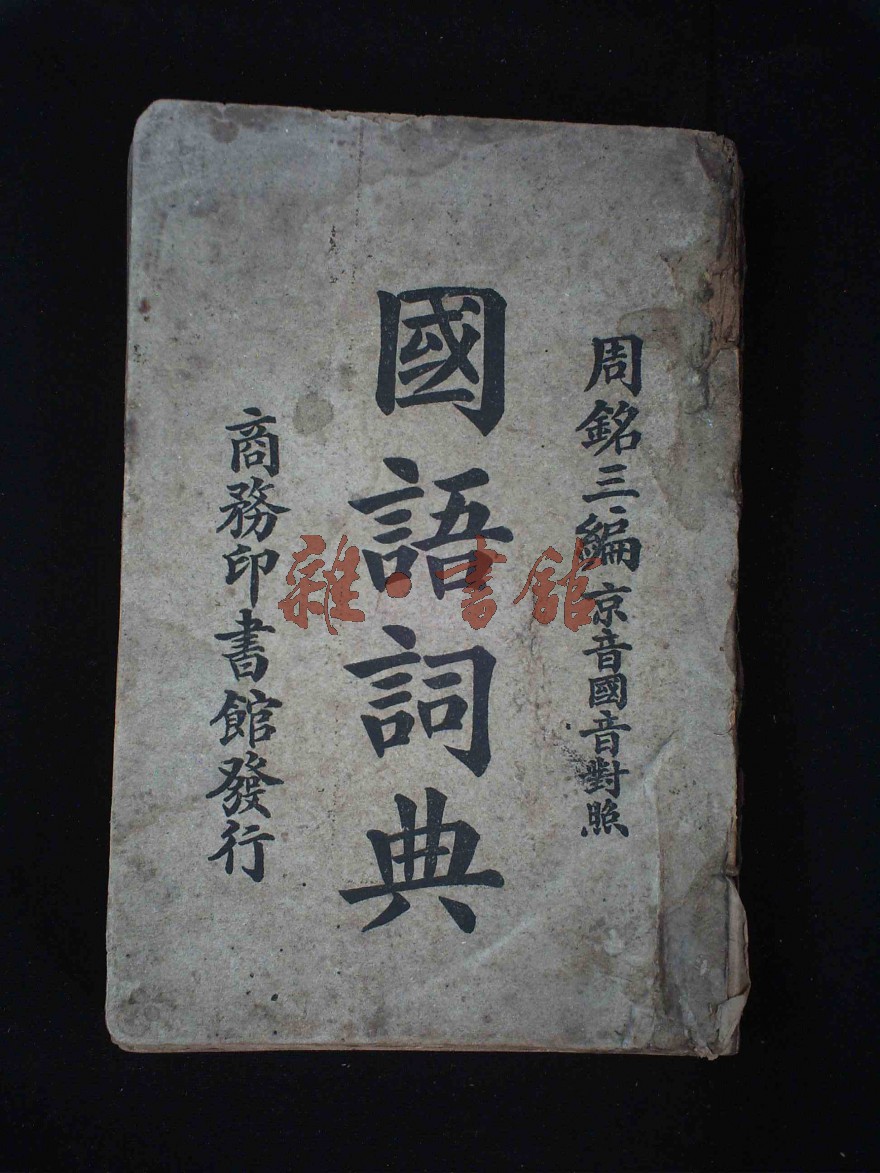 周銘三編 京音國音對照
國語詞典
商務印書館發行
雜·書館